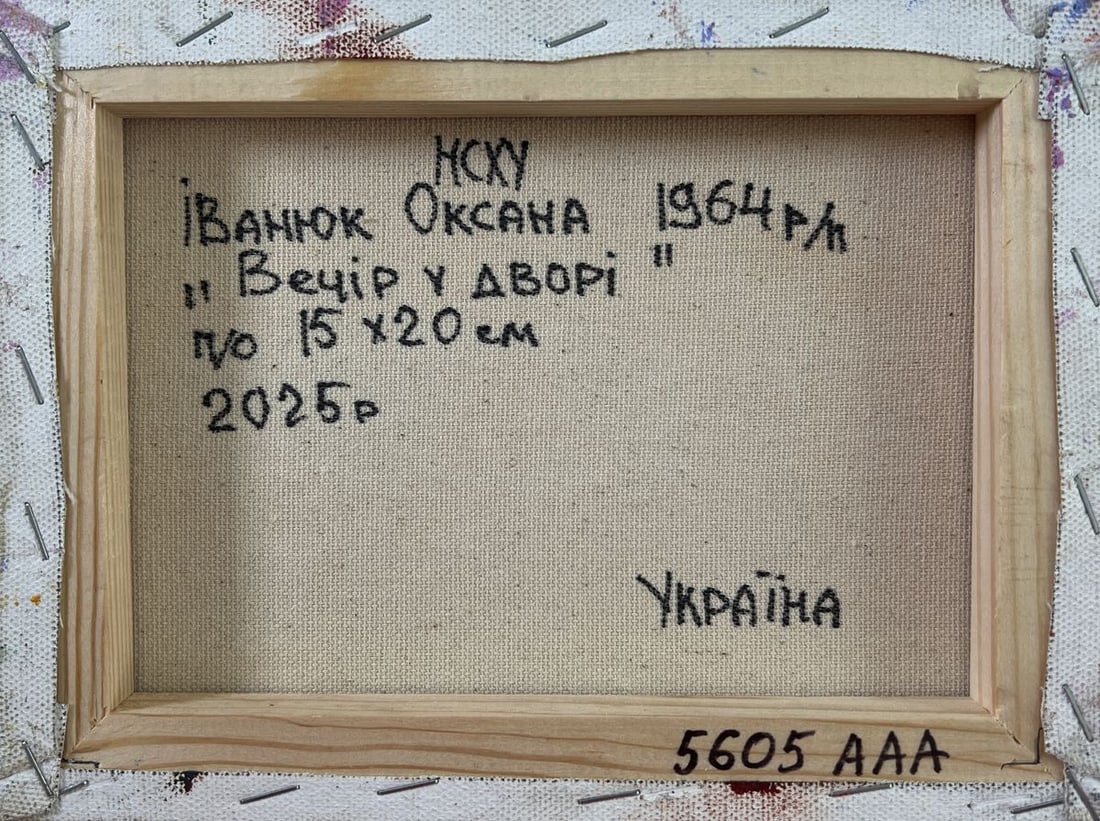 НСХУ
Іванюк Оксана 1964 р/н
„ Вечір у дворі "
п/о 15 х 20 см
2025р
Україна
5605 ААА